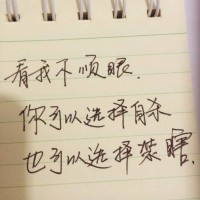 看我不顺眼.
你可以选择自杀
也可以选择装瞎.